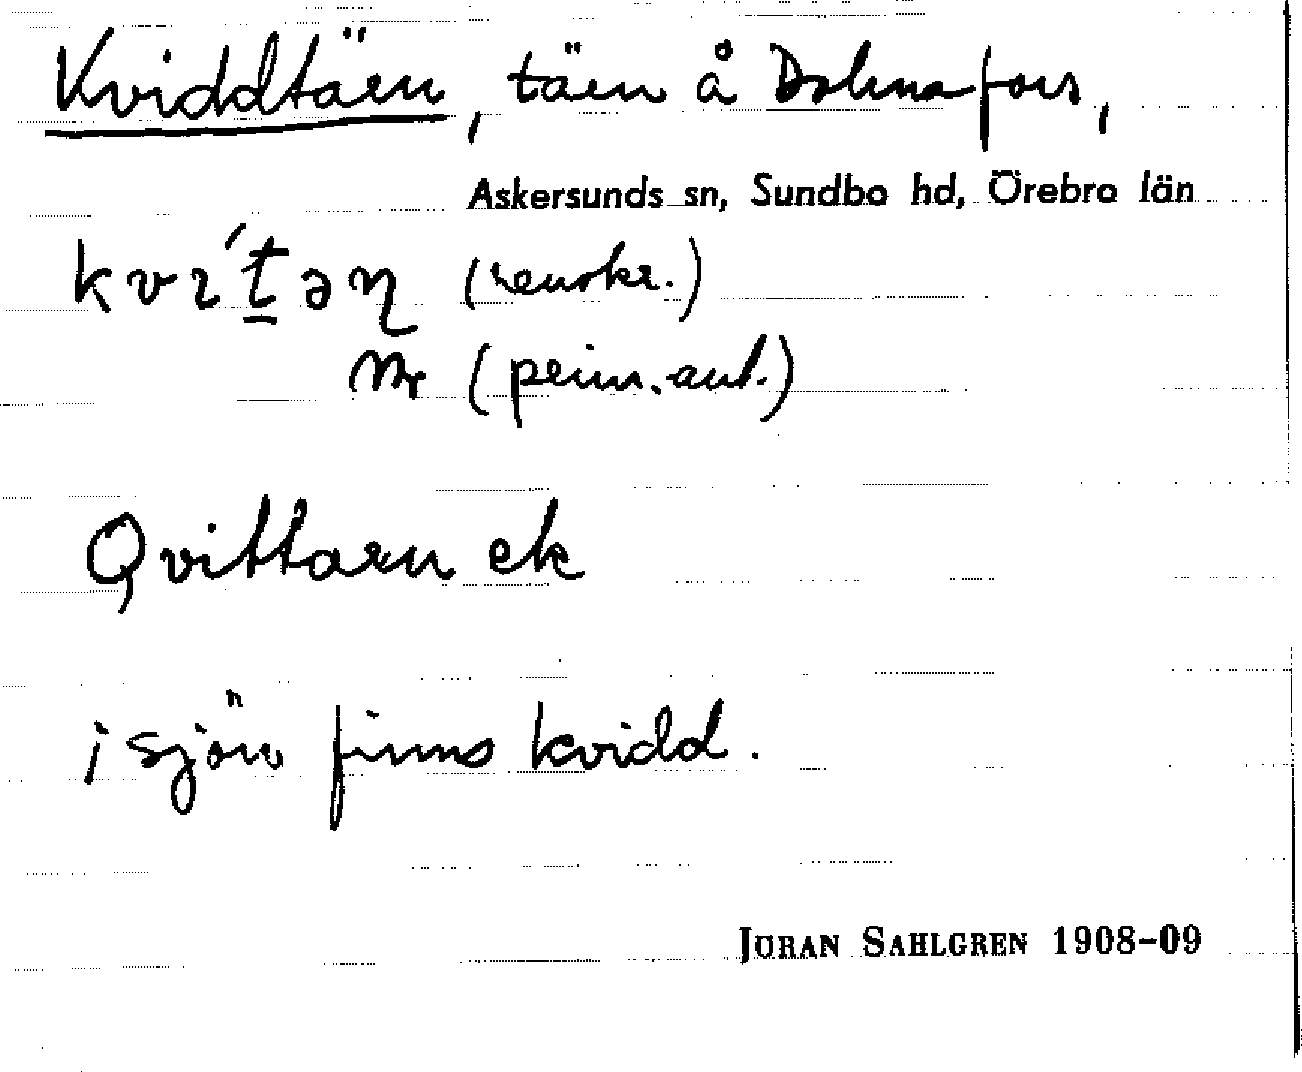 Kviddtäen, täen å Dohnafors,
Askersunds sn, Sundbo hd, Örebro län
kvɪ́təη (renskr.)
(penn.ant.)
Qvittaen ek
i sjön finns kvidd.
JÖRAN SAHLGREN 1908-09